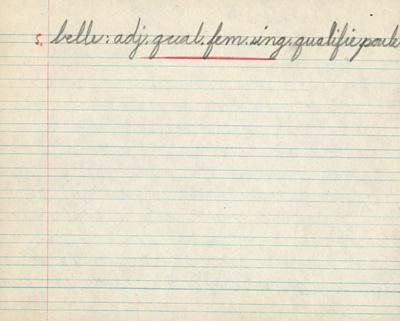 5. belle : adj. qual. fem. sing. qualifie poule